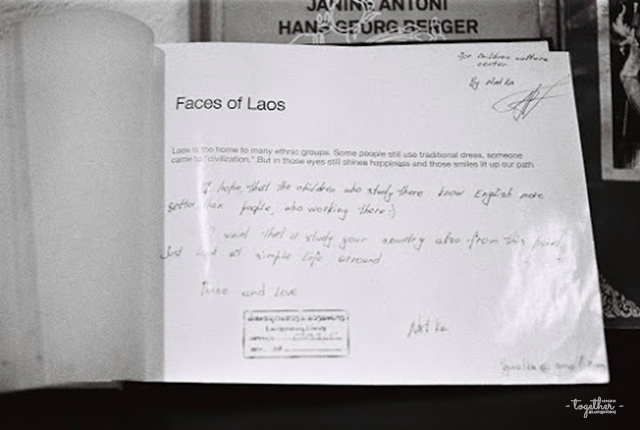 JANINE ANTONI
HANS GEORG BERGER
for children culture
center
By Natka
Faces of Laos
Laos is the home to many ethnic groups. Some people still use traditional dress, someone
came to "civilization." But in those eyes still shines happiness and those smiles lit up our path
I hope that the children who study there know English more
better than people, who working there:)
I want that u study your country also from this point
Just look at simple life around
Peace and Love
Natka
- together -